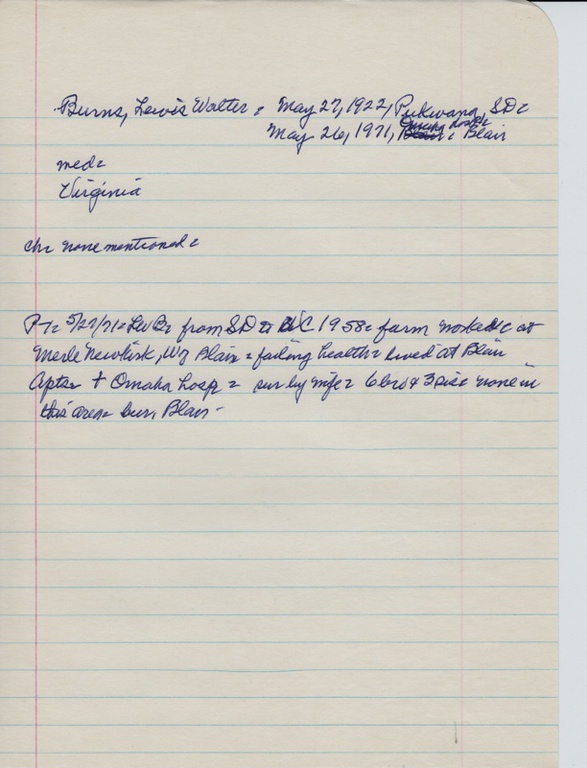 Burns, Lewis Walter = May 27, 1922, Pukwana, SD=
Omaha hosp=
May 26, 1971, Blair = Blair
med=
Virginia
ch= none mentioned=
P-T= 5/27/71= from SD to WC 1958= farm worked at
Merle Newkirk, W of Blair = failing health = lived at Blair
Apts= † Omaha hosp = sur by wife = 6 bro & 3 sis= none in
this area= bur, Blair-